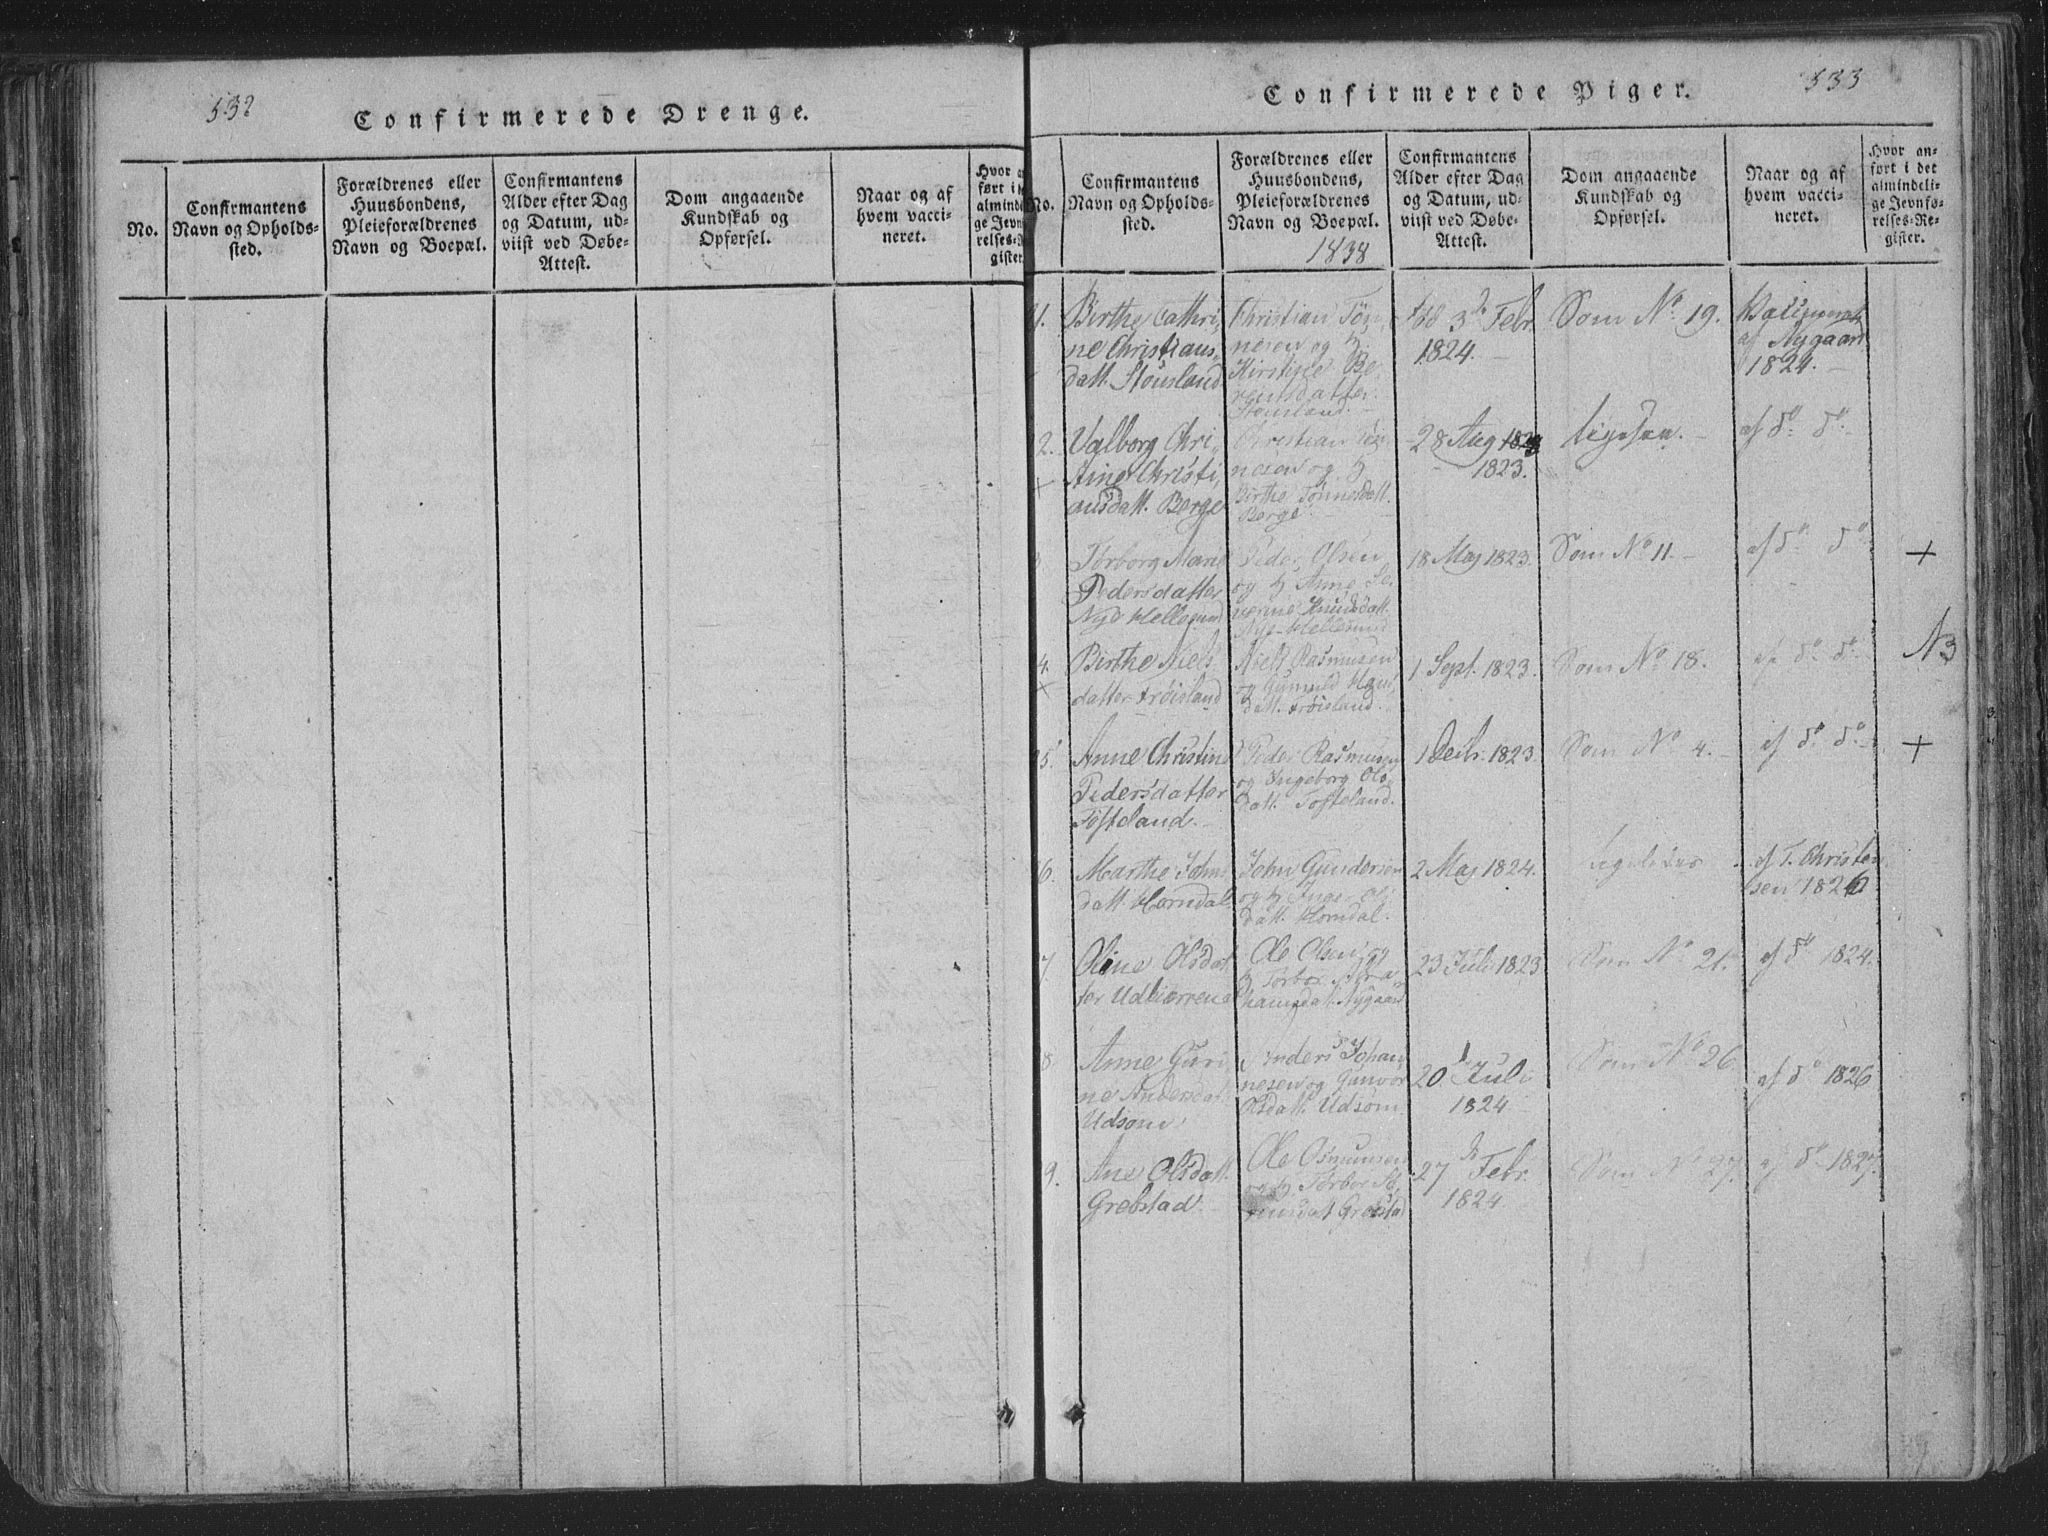 532
Confirmerede Drenge.
No.
Confirmantens
Navn og Opholds-
sted.
Forældrenes eller
Huusbondens,
Pleieforældrenes
Navn og Boepæl.
Confirmantens
Alder efter Dag
og Datum, ud-
viist ved Døbe-
Attest.
Dom angaaende
Kundskab og
Opførsel.
Naar og af
hvem vacci-
neret.
Hvor
ført i
almind
ge Jevn
relses-
gister.
533
Confirmerede Piger.
No.
Confirmantens
Navn og Opholds-
sted.
Forældrenes eller
Huusbondens,
Pleieforældrenes
Navn og Boepæl.
1838
Confirmantens
Alder efter Dag
og Datum, ud-
viist ved Døbe-
Attest.
Dom angaaende
Kundskab og
Opførsel.
Naar og af
hvem vacci-
neret.
Hvor an-
ført i det
almindeli-
ge Jevnfø-
relses-Re-
gister.
1.
Birthe Cathri,
ne Christians,,
datt. Stousland
Christian Tøn,
nesen og H.
Kirstine Be,
rentsdatter
Stousland.
3d Febr.
1824.
Som No. 19.
af Nygaard
1824.
2.
Valborg Chri,,
stine Christi,
ansdatt. Berge
Christian Tøn
nesen og H
Birthe Tønnesdatt.
Berge
28 Aug
1823.
ligesaa.
af do do
3
Torborg Marie
Pedersdatter
Nye Hellesund
Peder Olsen
og H Anne Se,
verine Knudsdatt.
Nye-Hellesund
18 Maj 1823.
Som No 11.
af do do
+
4.
Birthe Niels
datter Frøisland
Niels Rasmusen
og Gunnild Hans
datt. Frøisland.
1 Sept. 1823.
Som No 18.
af do do
N3
5.
Anne Christine
Pedersdatter
Tofteland.
Peder Rasmusen
og Ingeborg Ols,
datt. Tofteland.
1 Decbr. 1823.
Som No 4.
af do do
+
6.
Marthe Johns
datt. Horndal.
John Gundersen
og H Inge Ols
datt. Horndal.
2 Maj 1824.
Ligeledes
af T. Christen
sen 1826
7.
Oline Olsdat
ter Udbiørrena
Ole Olsen og
H Torbor Abra
hamsdat. Nygaard
23 Juli 1823
Som No 21.
af do 1824.
8.
Anne Guri
ne Andersdat.
Udsom
Anders Johan,
nesen og Gunvor
Olsdatt. Udsom.
20 Juli
1824
Som No 26
af do 1826
9.
Ane Olsdatt.
Grebstad.
Ole Osmunsen
og H. Torbor
Grebstad
27 Febr.
1824.
Som No 27.
af do 1827.